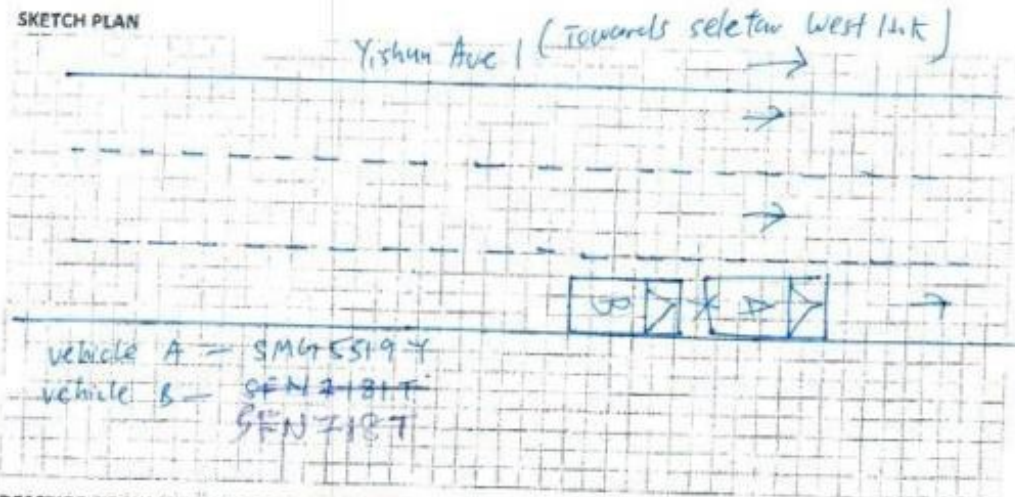 SKETCH PLAN
Yishun Ave 1 (Towards seletar West link)
B A
vehicle A - SMG5519Y
vehicle B - SFN7181T
SFN7187T